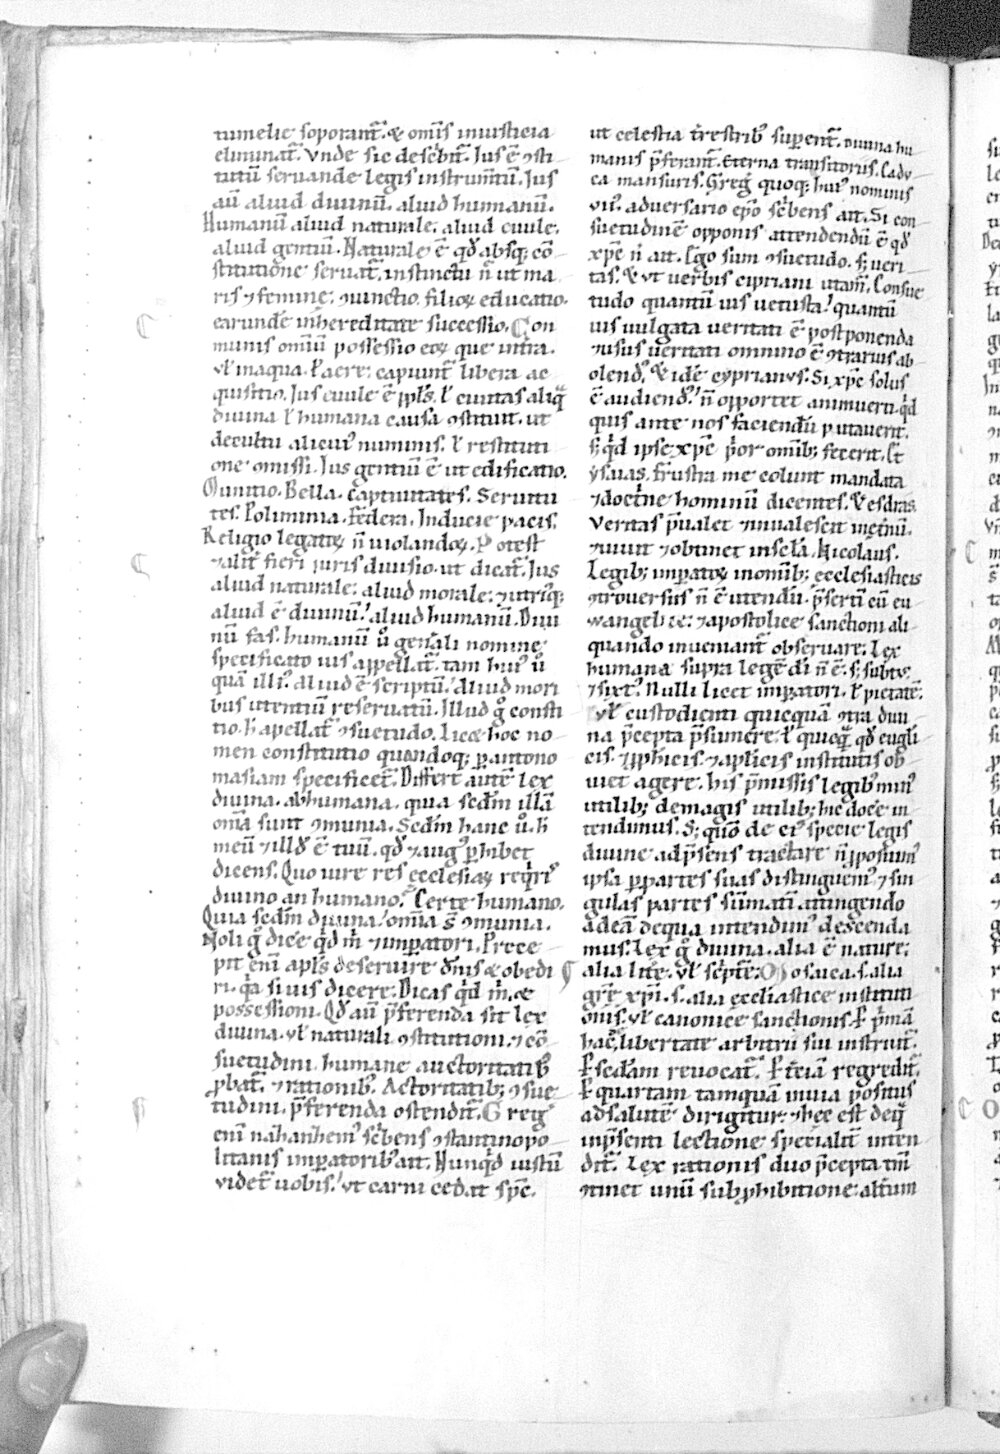 tumelie soporant᷑. & om̄is iniusticia
eliminat᷑. Vnde sic describit᷑. Ius ē ꝯsti
tutū seruande legis instrum̄tū. Ius
aū aliud diuinū. aliud humanū.
Humanū aliud naturale. aliud ciuile.
aliud gentiū. Naturale ē qđ absq; cō
stitutione seruat᷑. instinctu n̄ ut ma
ris ⁊ femine. ꝯiunctio. filioꝝ educatio.
earundē in hereditate successio. Con
munis omiū possessio eoꝝ que in t̄ra.
ul̓ in aqua. ł aere. capiunt᷑ libera ac
quisitio. Ius ciuile ē ppl̓s. ł ciuitas aliq̄
diuina ł humana causa ꝯstituit. ut
de cultu alicuiꝰ numinis. ł restituti
one omissi. Ius gentiū ē ut edificatio.
Munitio. Bella. Captiuitates. Seruitu
tes. Poliminia. Federa. Inducie pacis.
Religio legatoꝝ n̄ uiolandoꝝ. Potest
⁊ alit̓ fieri iuris diuisio. ut dicat᷑. Ius
aliud naturale. aliud morale. ⁊ utriq;
aliud ē diuinū. aliud humanū. Diui
nū fas. humanū ů gen̓ali nomine
specificato ius appellat᷑. tam huiꝰ ů
quā illiꝰ. aliud ē scriptū. aliud mori
bus utentiū reseruatū. Illud g̊ consti
tio. h̄ apellat᷑ ꝯsuetudo. Licꝫ hoc no
men constitutio quandoq; ꝑ antono
masiam specificet᷑. Differt autē lex
diuina. ab humana. quia scd̄m illā
om̄ia sunt ꝯmunia. Scd̄m hanc ů. h̄
meū ⁊ illđ ē tuū. qđ ⁊ augꝰ ꝓhibet
dicens. Quo iure res ecclesiaꝝ req̓risꝰ
diuino an humano. Certe humano.
Quia scd̄m diuina om̄ia s̄ ꝯmunia.
Noli g̊ dicē q̓d m̓ ⁊ imꝑatori. Prece
pit eni᷑ apl̓s deseruire dn̄is & obedi
ri. q̓a si uis dicere. Dicas q̓d m̓. &
possessioni. Qđ aū p̄ferenda sit lex
diuina. ul̓ naturali. ꝯstitutioni. ⁊ cō
suetudini humane auctoritatibꝰ
ꝓbat᷑. ⁊ rationibꝰ. Actoritatib; ꝯsue
tudini. p̄ferenda ostendit᷑. Greigꝰ
litanis imꝑatoribꝰ ait. Nunq̓d iustū
uidet᷑ uobis. ut carni cedat sp̄c.
ut celestia t̓restribꝰ suꝑent᷑. diuina hu
manis p̄ferant᷑. Eterna transitoriis. Cadu
ca mansuris. Greg̓ quoq; huiꝰ nominis
vii̓. aduersario ep̄o sc̓bens ait. Si con
suetudinē opponis attendendū ē qđ
xp̄c n̄ ait. Ego sum ꝯsuetudo. s; ueri
tas. & ut uerbis cipriani utam᷑. Consue
tudo quantū uis uetusta. quantū
uis uulgata ueritati ē postponenda
⁊ usus ueritati omnino ē ꝯtrarius ab
olendꝰ. & idē cyprianus. Si xp̄c solus
ē audiendꝰ. n̄ opportet animuerti q̓d
quis ante nos faciendū putauerit.
s; q̓d ipse xp̄c p̓or omib; fecerit. Et
ysaias. frustra me colunt mandata
⁊ doct̓ne hominū dicentes. & esdras.
Veritas p̄ualet ⁊ inualescit in et̓nū.
⁊ uiuit ⁊ obtinet in sc̄la. Nicolaus.
Legib; imꝑatoꝝ in omib; ecclesiasticis
ꝯtrouersiis n̄ ē utendū. p̄serti᷑ cū eu
wangelice. ⁊ apostolice sanctioni ali
quando inueniant᷑ obseruare. Lex
humana supra legē di᷑ n̄ ē. s; subtꝰ.
⁊ sixtꝰ. Nulli licet imꝑatori. ł pictatē.
ul̓ custodienti quicquā ꝯtra diui
na p̄cepta p̄sumere. ł quicq̄ qđ eugli
cis. ⁊ ꝓphicis. ⁊ apl̓icis institutis ob
uiet agere. his p̄missis legibꝰ minꝰ
utilib; de magis utilib; hic docē in
tendimus. S; qm̄ de eiꝰ specie legis
diuine ad p̄sens tractare n̄ possumꝰ
ipsa ꝑ partes suas distinguemꝰ ⁊ sin
gulas partes sūmati᷑ attingendo
ad eā de qua intendimꝰ descenda
mus. Lex g̊ diuina. alia ē nature.
alia lit̓e. ul̓ sc̓pte. Mosaica. s. alia
gr̄e xp̄i. s. alia eccl̓iastice instituti
onis. ul̓ canonice sanctionis. ł p̓mā
hac̓. libertate arbitrii sui instruit᷑.
ł scd̄am reuocat᷑. ł t̓ciā regredit᷑.
ł quartam tamquā in uia positus
ad salutē dirigitur. ⁊ hec est de q̄
in p̄senti lectione speciali᷑t inten
dit᷑. Lex rationis duo p̄cepta tm̄
ꝯtinet unū sub ꝓhibitione. alt̓um